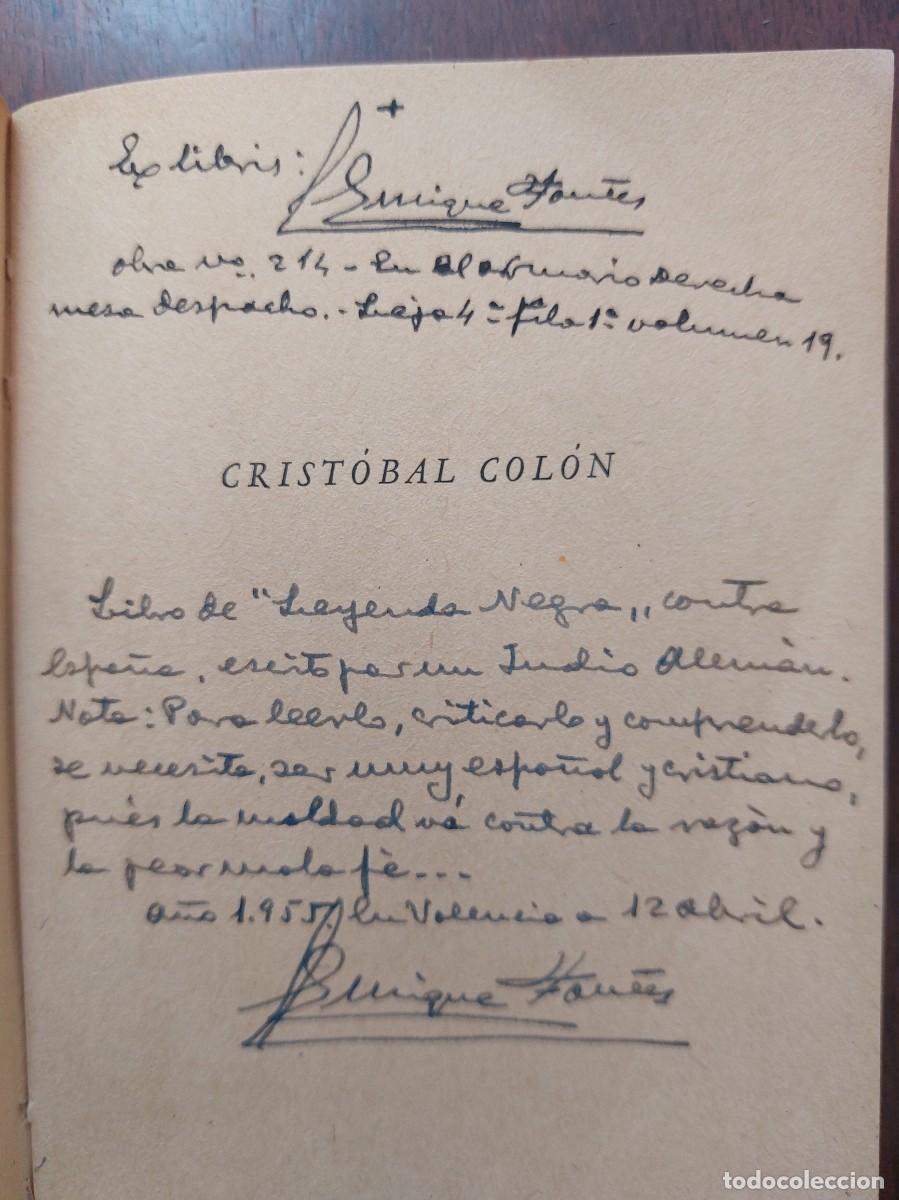 Ex libris: Enrique Fontes
obra nº. 214 - En el armario derecha
mesa despacho. - Leja 4ª fila 1ª volumen 19.
CRISTÓBAL COLÓN
Libro de "Leyenda Negra,, contra
España, escrito por un Judio Alemán.
Nota: Para leerlo, criticarlo y comprenderlo,
se necesita, ser muy español y cristiano,
pués la maldad vá contra la razón y
la peor mala fé...
Año 1.955, En Valencia a 12 abril.
Enrique Fontes
todocoleccion